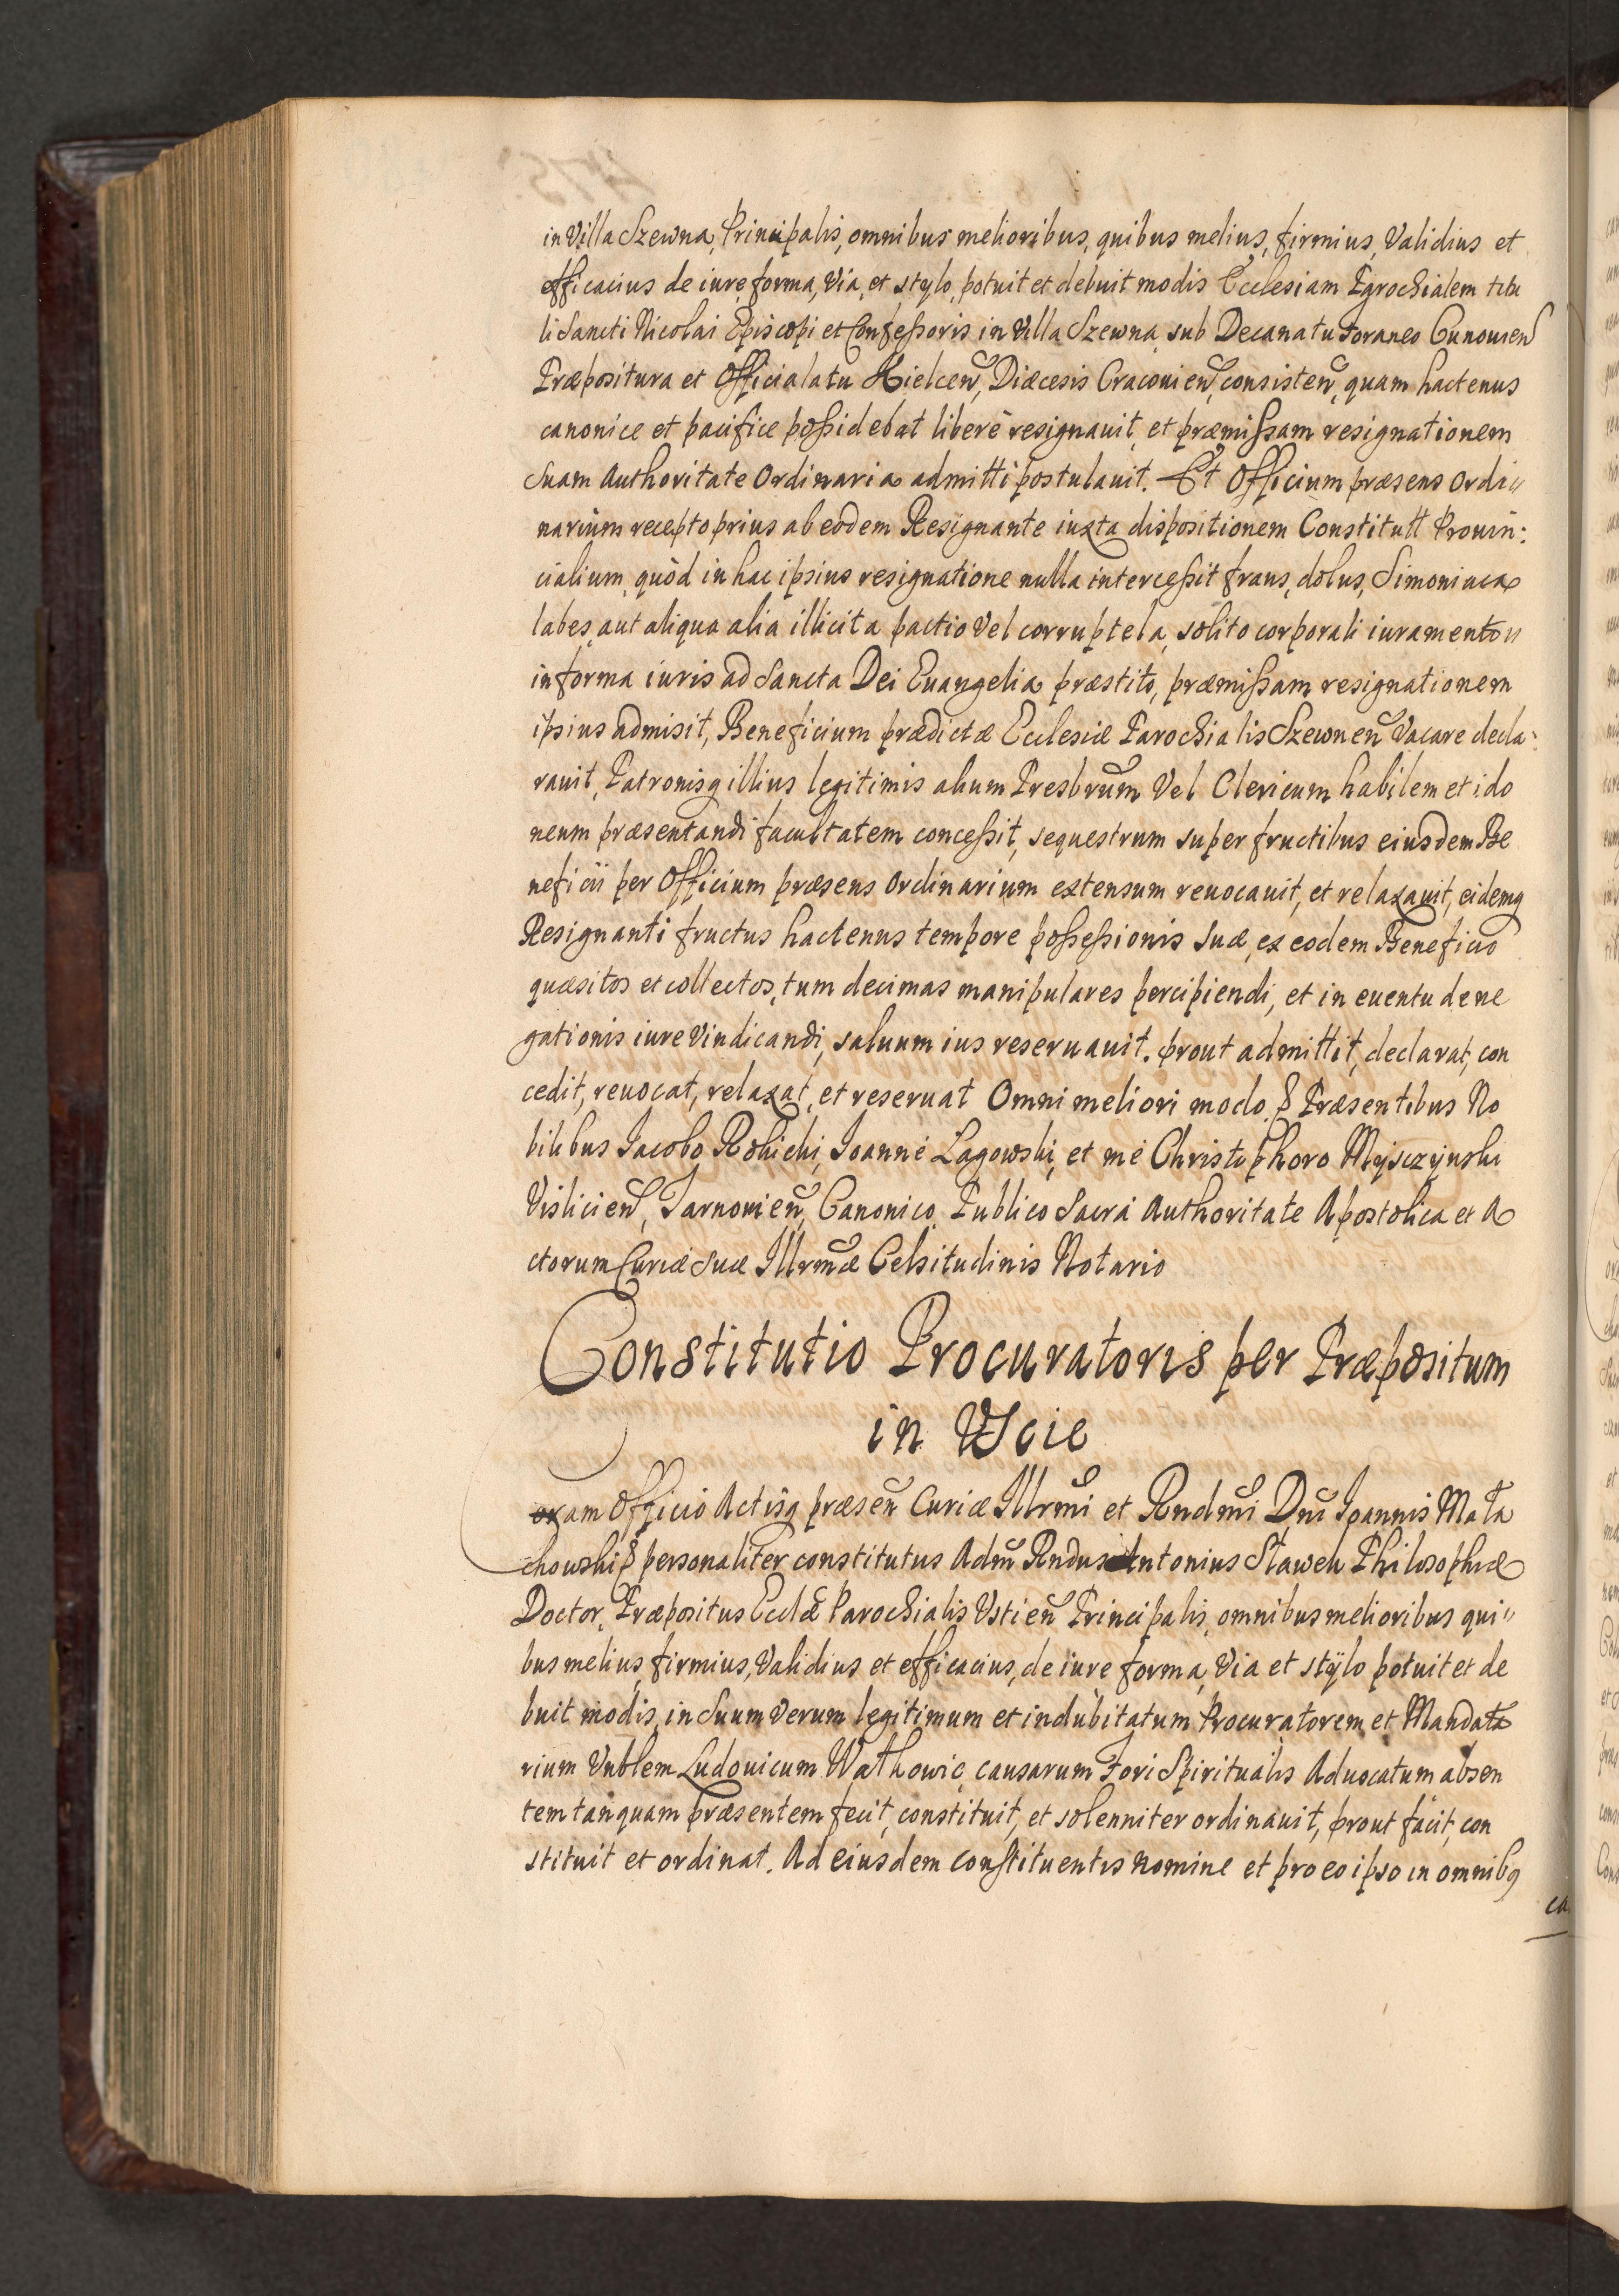 in Villa Szewna, Principalis, omnibus melioribus, quibus melius, firmius, Validius et
efficacius de iure, forma, via, et stylo, potuit et debuit modis Ecclesiam Parochialem titu
li Sancti Nicolai Episcopi et Confessoris in Villa Szewna sub Decanatu Foraneo Cunouien
Præpositura et Officialatu Kielcen̄, Diæcesis Cracouien̄, consisten̄, quam hactenus
canonice et pacifice possidebat liberè resignauit, et præmissam resignationem
Suam Authoritate Ordinaria admitti postulauit. Et Officium præsens Ordi=
narium recepto prius ab eodem Resignante iuxta dispositionem Constitutt Prouin:
cialium, quòd in hac ipsius resignatione nulla intercessit fraus, dolus, Simoniaca
labes, aut aliqua alia illicita pactio Vel corruptela, solito corporali iuramento
in forma iuris ad Sancta Dei Euangelia præstito, præmissam resignationem
ipsius admisit, Beneficium prædictæ Ecclesiæ Parochialis Szewnen̄ Vacare decla=
rauit, Patronisq illius legitimis alium Presbrum̄ Vel Clericum habilem et ido
neum præsentandi facultatem concessit, sequestrum super fructibus eiusdem Be
neficii per Officium præsens Ordinarium extensum reuocauit, et relaxauit, eidemq
Resignanti fructus hactenus tempore possessionis suæ, ex eodem Beneficio
quæsitos et collectos, tum decimas manipulares percipiendi, et in euentu dene
gationis iure Vindicandi, saluum ius reseruauit. prout admittit, declarat, con
cedit, reuocat, relaxat, et reseruat Omni meliori modo. Præsentibus No
bilibus Jacobo Rolicki, Joanne Lagowski, et me Christophoro Mysczynski
Vislicien̄, Tarnouien̄, Canonico, Publico Sacra Authoritate Apostolica et A
ctorum Curiæ Suæ Illrmæ Celsitudinis Notario
Constitutio Procuratoris per Præpositum
in Uscie
oram Officio Actisq præsen̄ Curiæ Illrmi et Rndmi Dni Joannis Mała
chowski personaliter constitutus Adm Rndus Antonius Stawek Philosophiæ
Doctor, Præpositus Ecclæ Parochialis Ustien̄ Principalis, omnibus melioribus qui=
bus melius, firmius, Validius et efficacius, de iure forma, Via et stÿlo potuit et de
buit modis, in Suum Verum legitimum et indubitatum Procuratorem et Mandata
rium Vnblem Ludouicum Wathowic, causarum Fori Spiritualis Aduocatum absen
tem tanquam præsentem fecit, constituit, et solenniter ordinauit, prout facit, con
stituit et ordinat. Ad eiusdem constituentis nomine et pro eo ipso in omnibq
ca